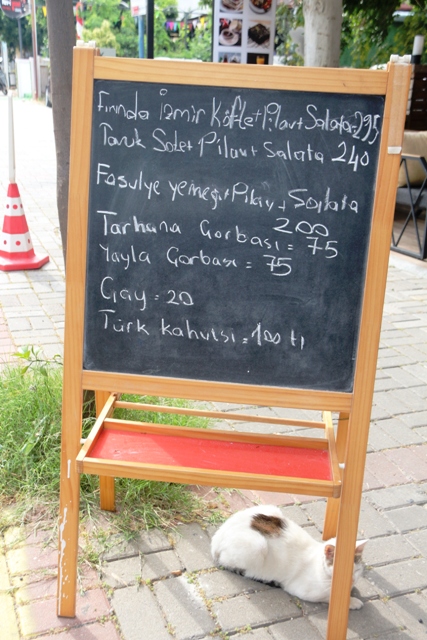 Fırında İzmir Köfte+Pilav+Salata=295
Tavuk Sote+Pilav+Salata 240
Fasulye yemeği+Pilav+Salata
200
Tarhana Çorbası = 75
Yayla Çorbası = 75
Çay = 20
Türk kahvesi = 100 tl